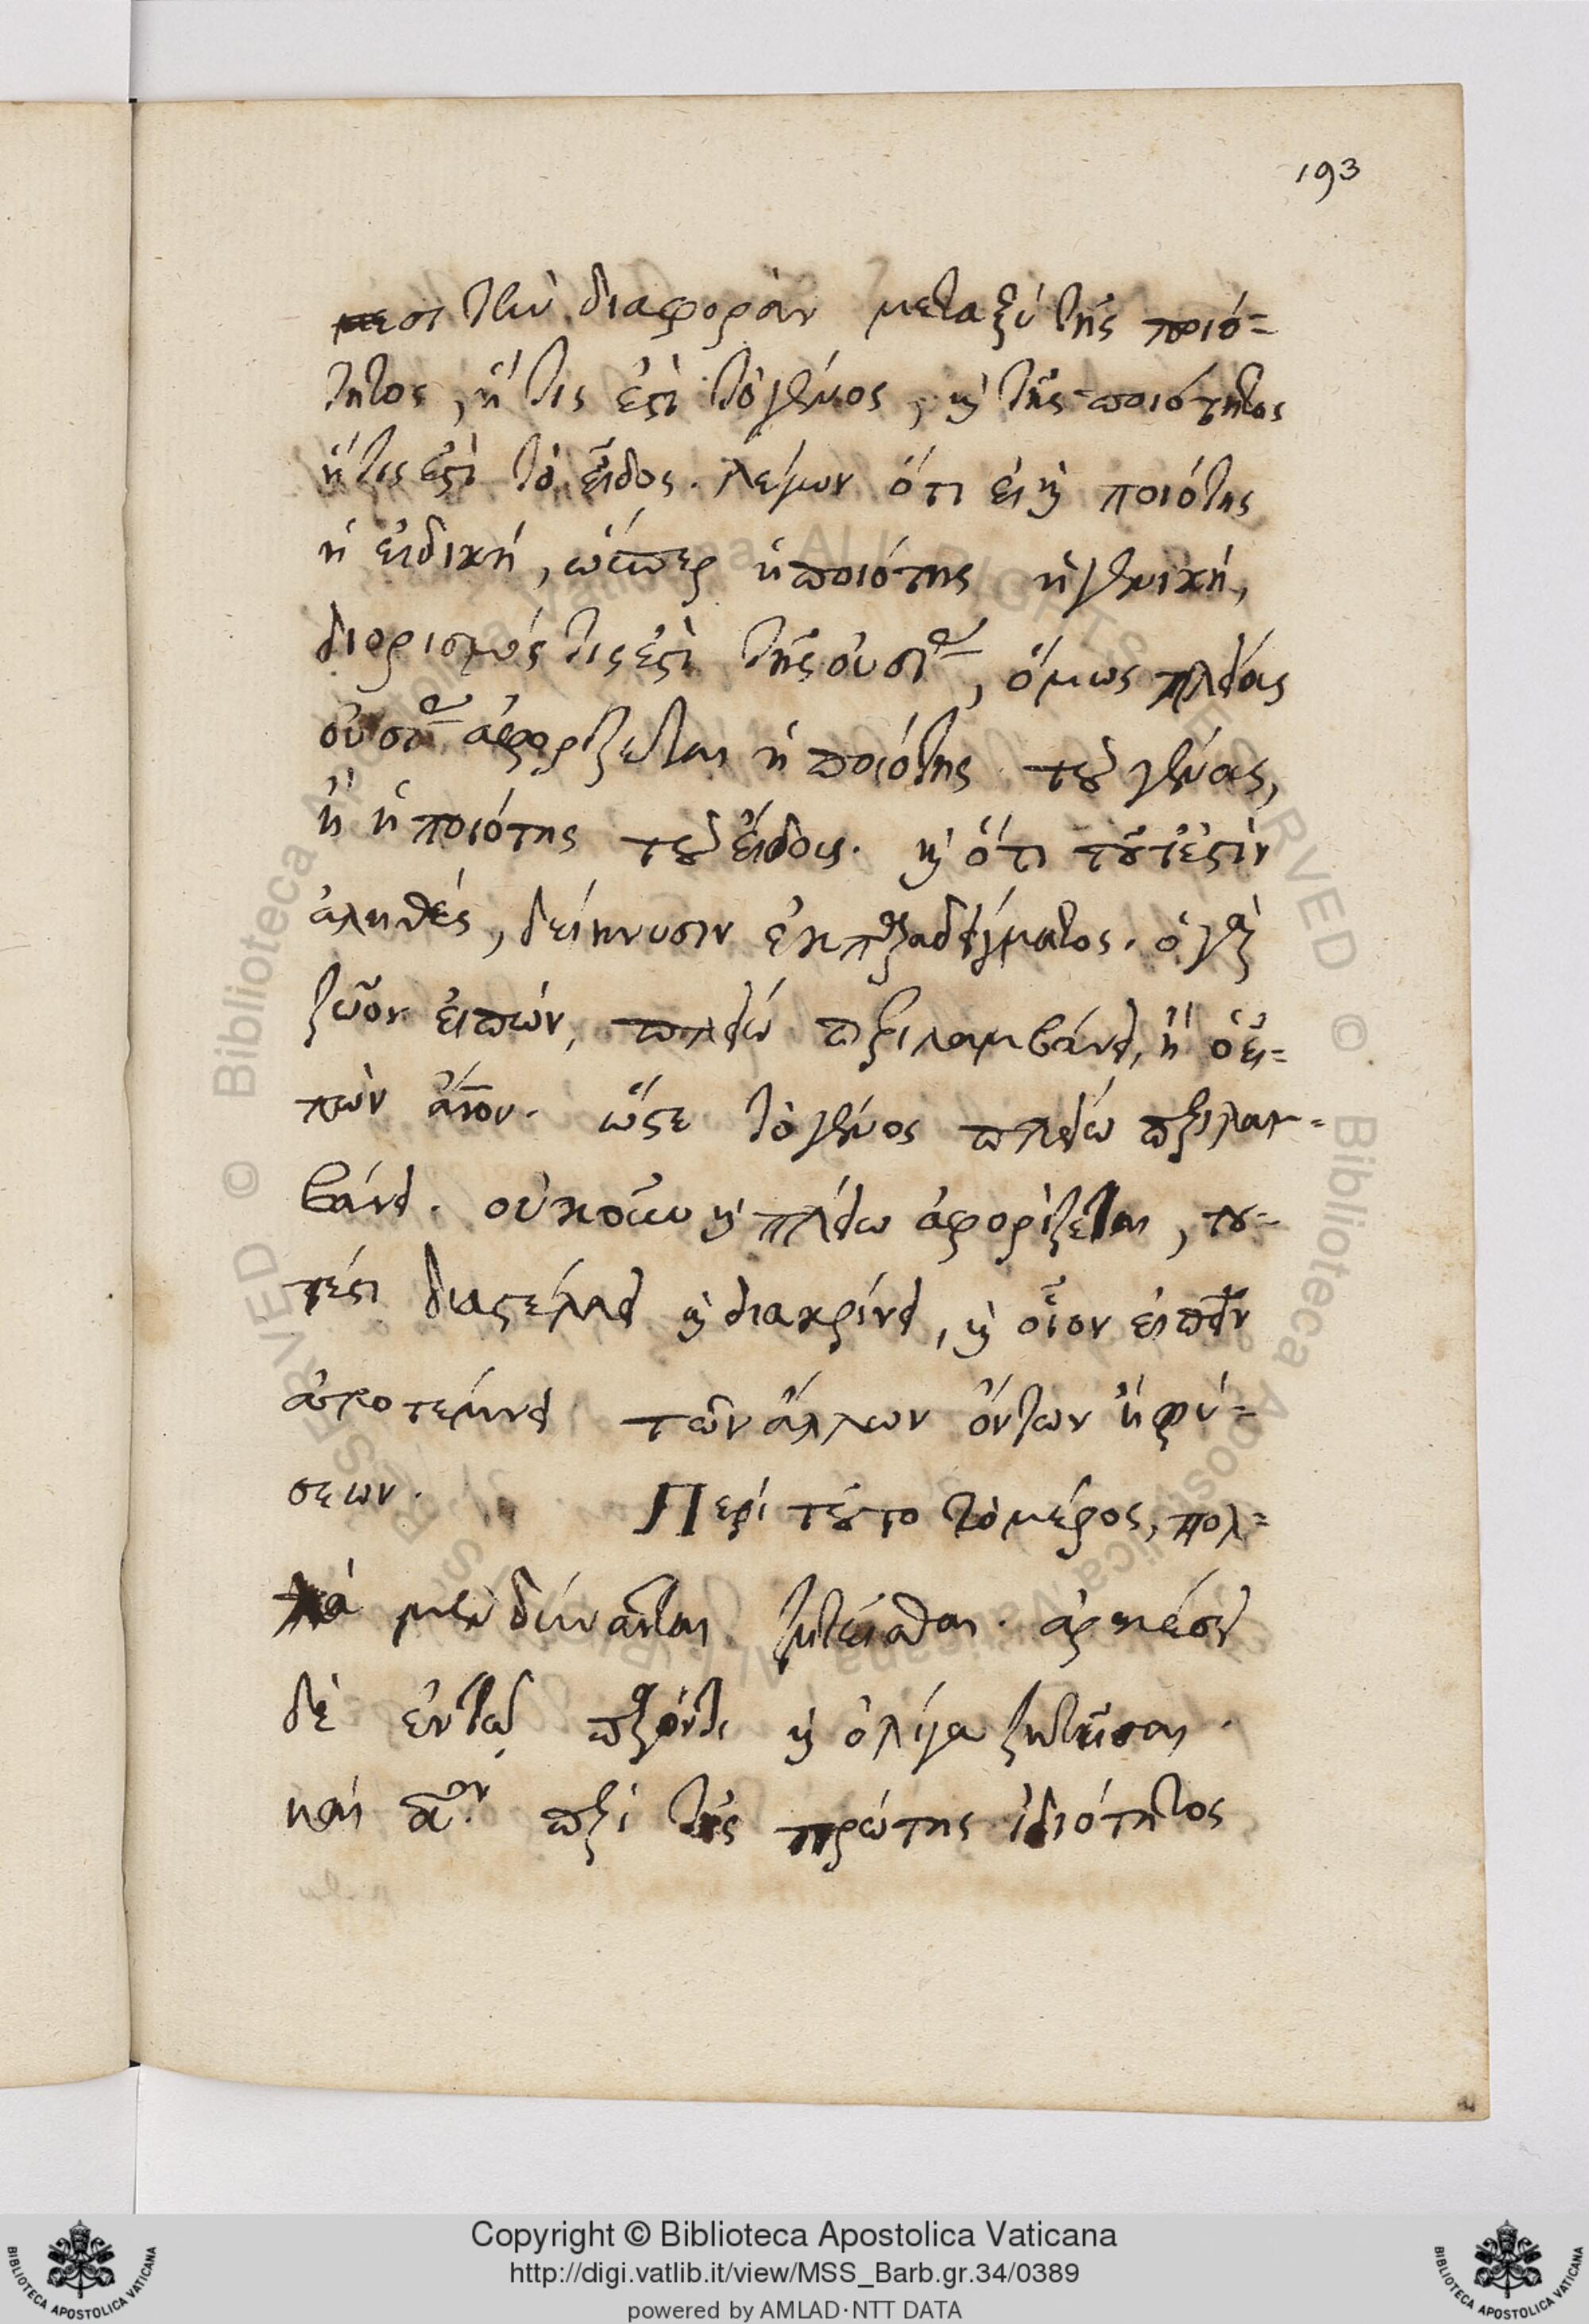 193
μεσι τὴν διαφορὰν μεταξὺ τῆς ποιό=
τητος, ἥ τις ἐστὶ τὸ γένος, καὶ τῆς ποιότητος
ἥτις ἐστὶ τὸ εἶδος. λέγων ὅτι εἰ καὶ ποιότης
ἡ εἰδική, ὥσπερ ἡ ποιότης ἡ γενική,
διορισμός τις ἐστὶ τῆς οὐσίας, ὅμως πλείας
οὐσίας ἀφορίζεται ἡ ποιότης τοῦ γένους,
ἢ ἡ ποιότης τοῦ εἴδους. καὶ ὅτι τοῦτ' ἐστὶν
ἀληθές, δείκνυσιν ἐκ παραδείγματος. ὁ γὰρ
ζῶον εἰπών, πλείω περιλαμβάνει, ἢ ὁ εἰ=
πὼν ἄνον. ὥστε τὸ γένος πλείω περιλαμ=
βάνει. οὐκοῦν καὶ πλείω ἀφορίζεται, του=
τέστι διαστέλλει καὶ διακρίνει, καὶ οἷον εἰπεῖν
ἀποτέμνει τῶν ἄλλων ὄντων ἢ φύ=
σεων. Περὶ τοῦτο τὸ μέρος, πολ=
λὰ μὲν δύνανται ζητεῖσθαι. ἀρκέσει
δὲ ἐν τῷ παρόντι καὶ ὀλίγα ζητῆσαι.
καὶ αον περὶ τῆς πρώτης ἰδιότητος
Copyright © Biblioteca Apostolica Vaticana
http://digi.vatlib.it/view/MSS_Barb.gr.34/0389
powered by AMLAD·NTT DATA
BIBLIOTECA APOSTOLICA VATICANA
BIBLIOTECA APOSTOLICA VATICANA